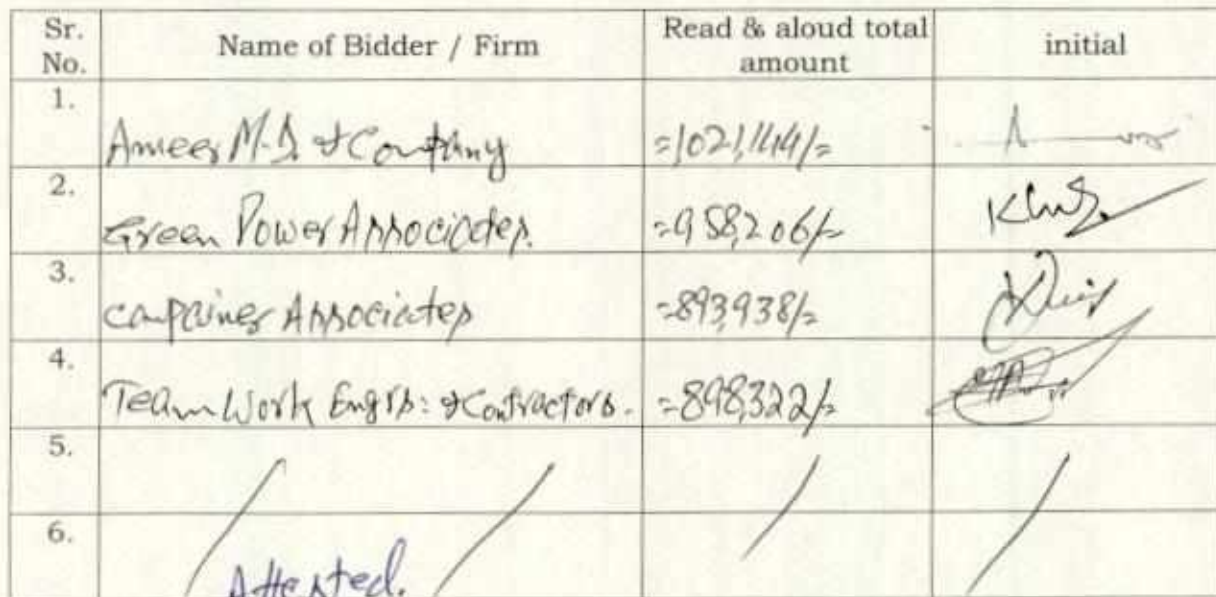 Sr. No. Name of Bidder / Firm Read & aloud total amount initial
1. Ameer M.D. & Company =1021,144/=
2. Green Power Associates. =958,206/=
3. Associates =893,938/=
4. Team Work Engrs: & Contractors. =898,322/=
5.
6.
Attested.